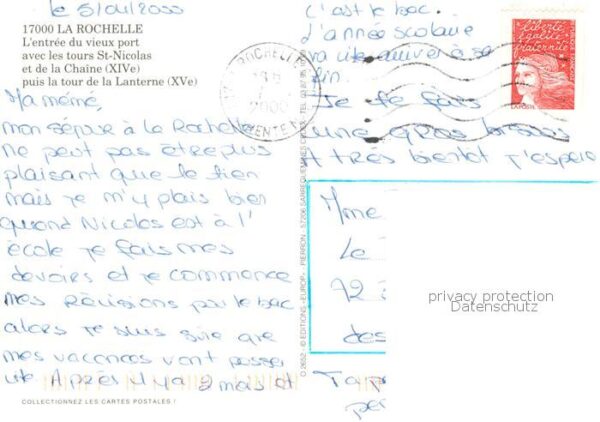 le 5/04/2000
17000 LA ROCHELLE
L'entrée du vieux port
avec les tours St-Nicolas
et de la Chaîne (XIVe)
puis la tour de la Lanterne (XVe)
Ma mémé,
mon séjour à la Rochelle
ne peut pas être plus
plaisant que le tien
mais je m'y plais bien
quand Nicolas est à l'
école je fais mes
devoirs et je commence
mes Révisions pour le bac
alors je suis sûre que
mes vacances vont passer
vite Après il y a 2 mois et
COLLECTIONNEZ LES CARTES POSTALES !
c'est le bac.
L'année scolaire
va vite arriver à sa
fin.
Je te fais
une gros bisous
A très bientôt j'espère
ROCHELLE
2000
liberté
égalité
fraternité
LA POSTE
EDITIONS "EUROP" PIERRON - 57206 SARREGUEMINES CEDEX - TEL
Mme
Le
72
des
privacy protection
Datenschutz